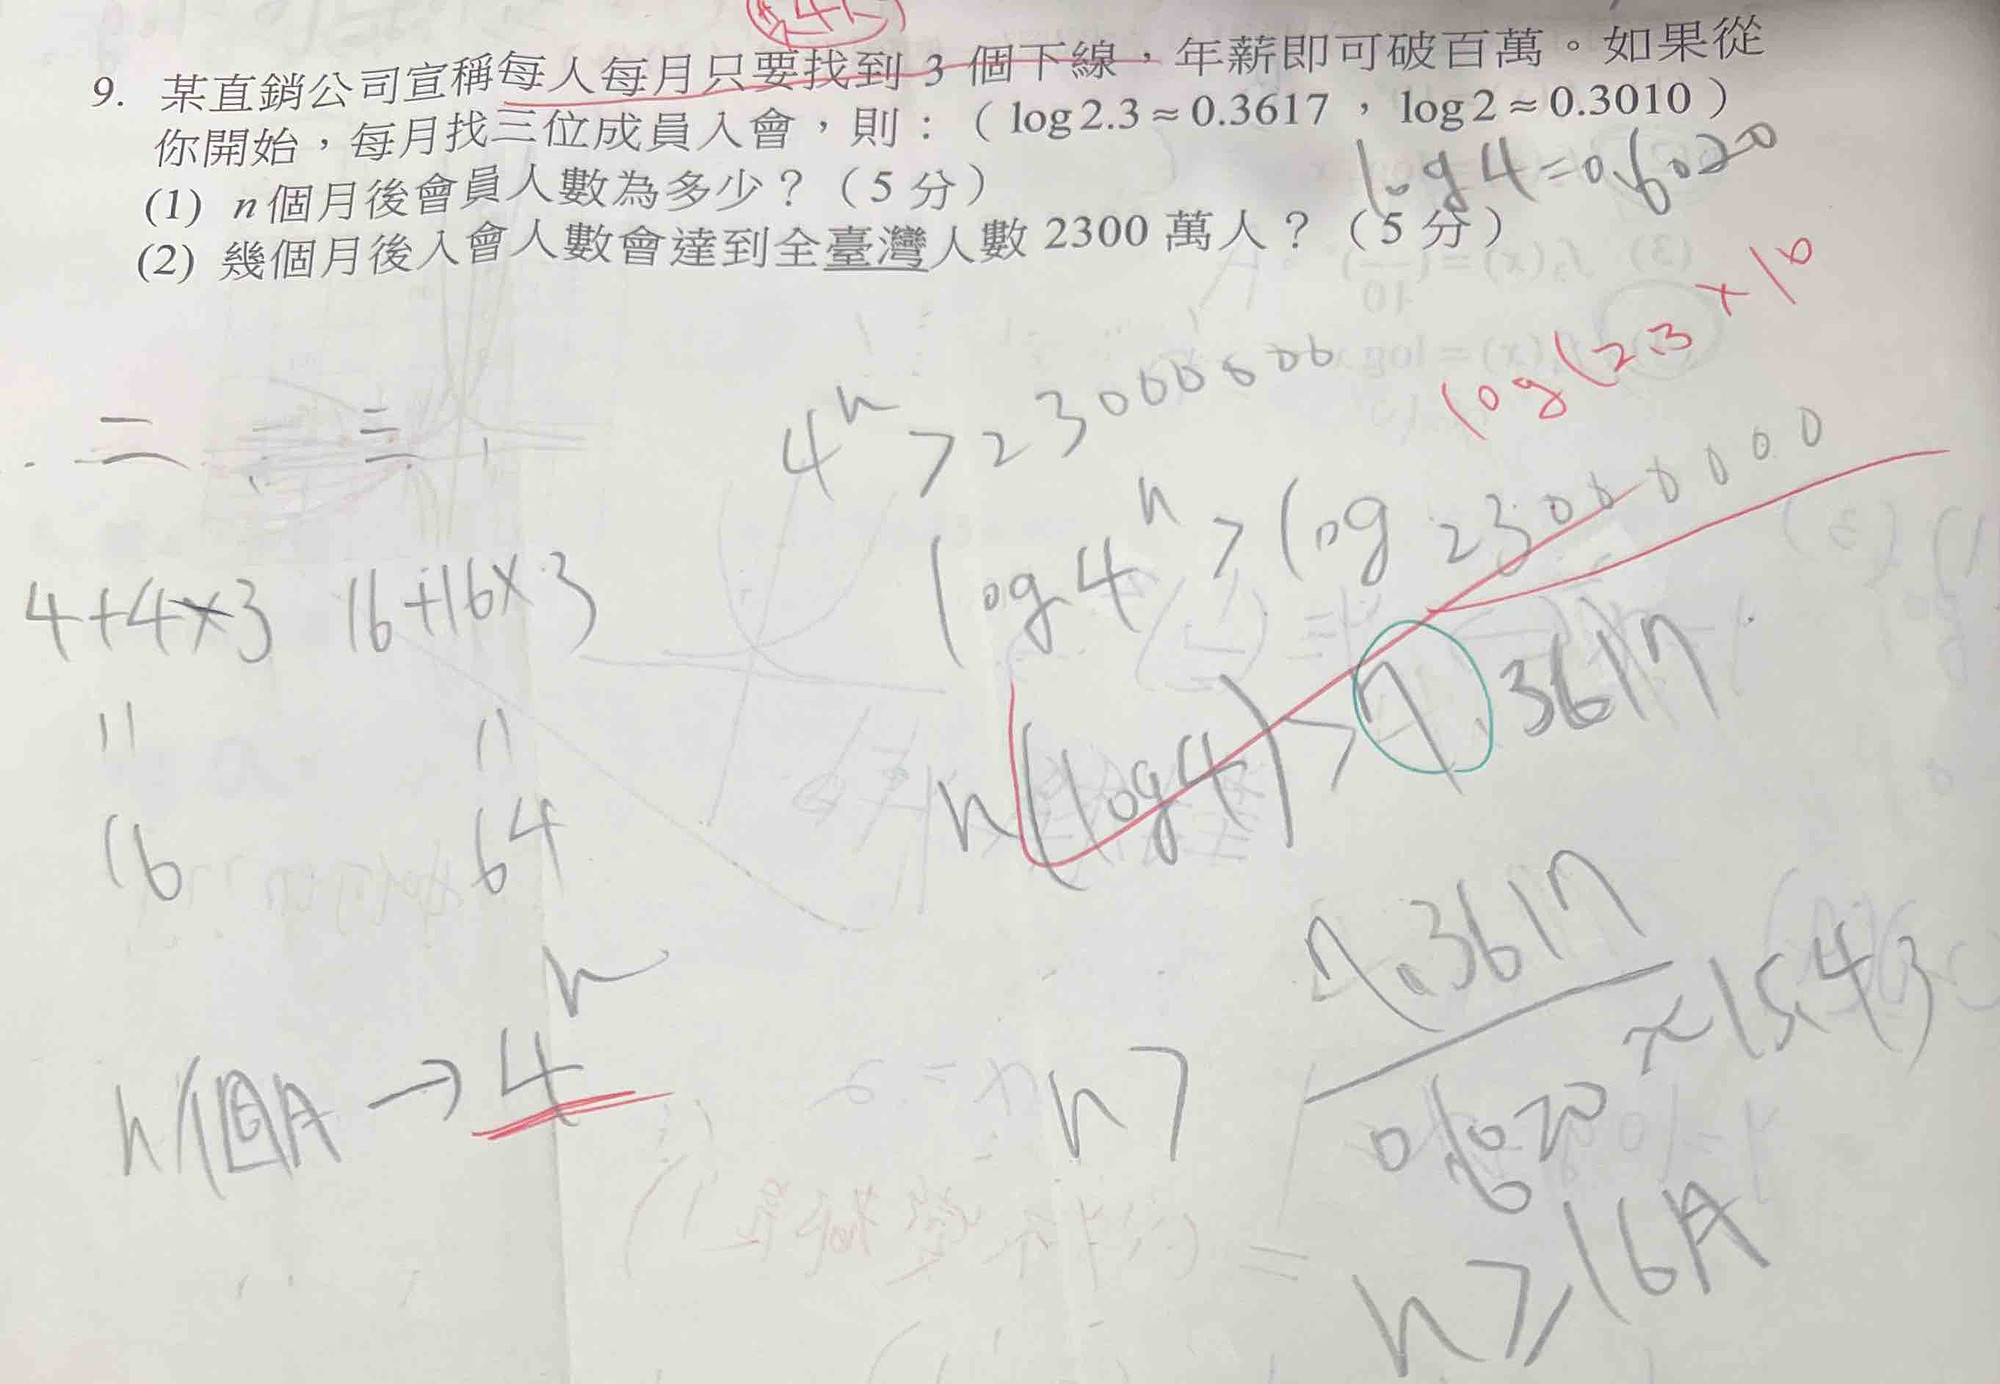 9. 某直銷公司宣稱每人每月只要找到 3 個下線，年薪即可破百萬。如果從
你開始，每月找三位成員入會，則：（log2.3≈0.3617，log2≈0.3010）
(1) n個月後會員人數為多少？（5 分）
log4=0.6020
(2) 幾個月後入會人數會達到全臺灣人數 2300 萬人？（5 分）
log(2.3×10
二 三
4^n>23000000
log4^n>log23000000
4+4×3 16+16×3
n(log4)>7.3617
=  =
16 64
n個月→4^n
n> 7.3617/0.6020 ≈15.43
n≥16月